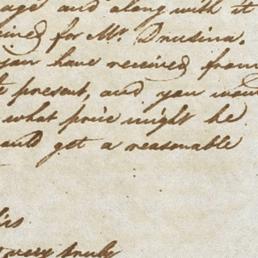 age and along with it
ined for Mr. Drusina.
you have received from
present, and you wou
what price might he
ould get a reasonable
very truly